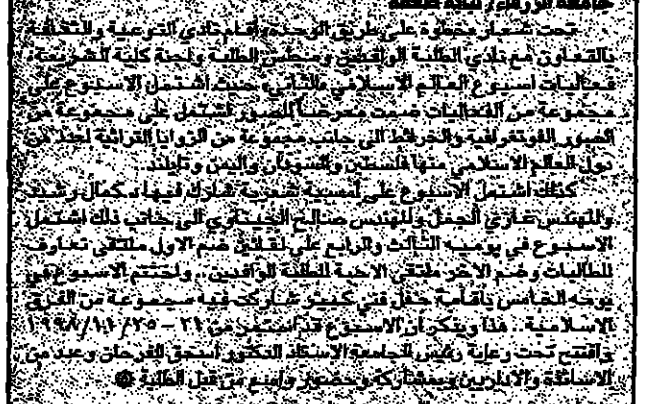 جامعة الزرقاء / نبالة طعمة
تحت شعار «خطوة على طريق الوحدة» أقام نادي التوعية والتثقيف
بالتعاون مع نادي الطلبة الوافدين ومجلس الطلبة ولجنة كلية الشريعة
فعاليات أسبوع العالم الإسلامي والثاني، حيث اشتمل الاسبوع على
مجموعة من الفعاليات ضمت معرضاً للصور اشتمل على مجموعة من
الصور الفوتوغرافية والخرائط الى جانب مجموعة من الزوايا التراثية لعدد من
دول العالم الاسلامي منها فلسطين والسودان واليمن وتايلند.
كذلك اشتمل الاسبوع على امسية شعرية شارك فيها د. كمال رشيد
والمهندس غازي الجمل والمهندس صالح الجيتاوي الى جانب ذلك اشتمل
الاسبوع في يوميه الثالث والرابع على لقائين ضم الاول ملتقى تعارف
للطالبات وضم الآخر ملتقى الاحبة للطلبة الوافدين.. واختتم الاسبوع في
يومه الخامس باقامة حفل فني كبير شاركت فيه مجموعة من الفرق
الاسلامية.. هذا ويذكر أن الاسبوع قد استمر من ٢١ - ٢٥/١١/١٩٩٨
وافتتح تحت رعاية رئيس الجامعة الاستاذ الدكتور اسحق الفرحان وعدد من
الاساتذة والاداريين وبمشاركة وحضور واسع من قبل الطلبة